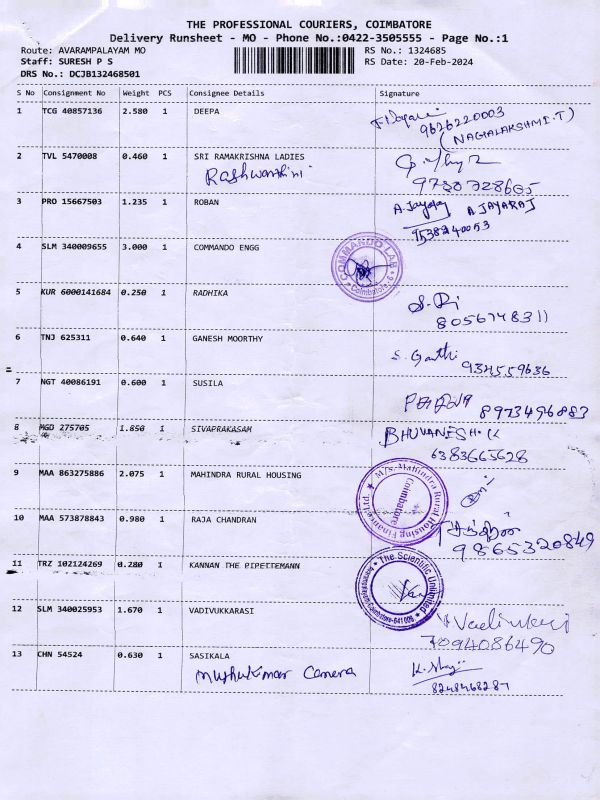 THE PROFESSIONAL COURIERS, COIMBATORE
Delivery Runsheet - MO - Phone No.:0422-3505555 - Page No.:1
Route: AVARAMPALAYAM MO RS No.: 1324685
Staff: SURESH P S RS Date: 20-Feb-2024
DRS No.: DCJB132468501
S No Consignment No Weight PCS Consignee Details Signature
1 TCG 40857136 2.580 1 DEEPA
9626220003
(NAGALAKSHMI.T)
2 TVL 5470008 0.460 1 SRI RAMAKRISHNA LADIES
Rashwanthini
3 PRO 15667503 1.235 1 ROBAN
A.Jayaraj A JAYARAJ
9538240053
4 SLM 340009655 3.000 1 COMMANDO ENGG
COMMANDO LAB
Coimbatore-6
5 KUR 6000141684 0.250 1 RADHIKA
8056748311
6 TNJ 625311 0.640 1 GANESH MOORTHY
934559636
7 NGT 40086191 0.600 1 SUSILA
8973496883
8 MGD 275705 1.850 1 SIVAPRAKASAM
BHUVANESH.K
6383665628
9 MAA 863275886 2.075 1 MAHINDRA RURAL HOUSING
M/s. Mahindra Rural Housing Finance Pvt. Ltd
Coimbatore
10 MAA 573878843 0.980 1 RAJA CHANDRAN
9865320849
11 TRZ 102124269 0.280 1 KANNAN THE PIPETTEMANN
The Scientific Unlimited
12 SLM 340025953 1.670 1 VADIVUKKARASI
7094086490
13 CHN 54524 0.630 1 SASIKALA
Muthukumar Camera
8248468287